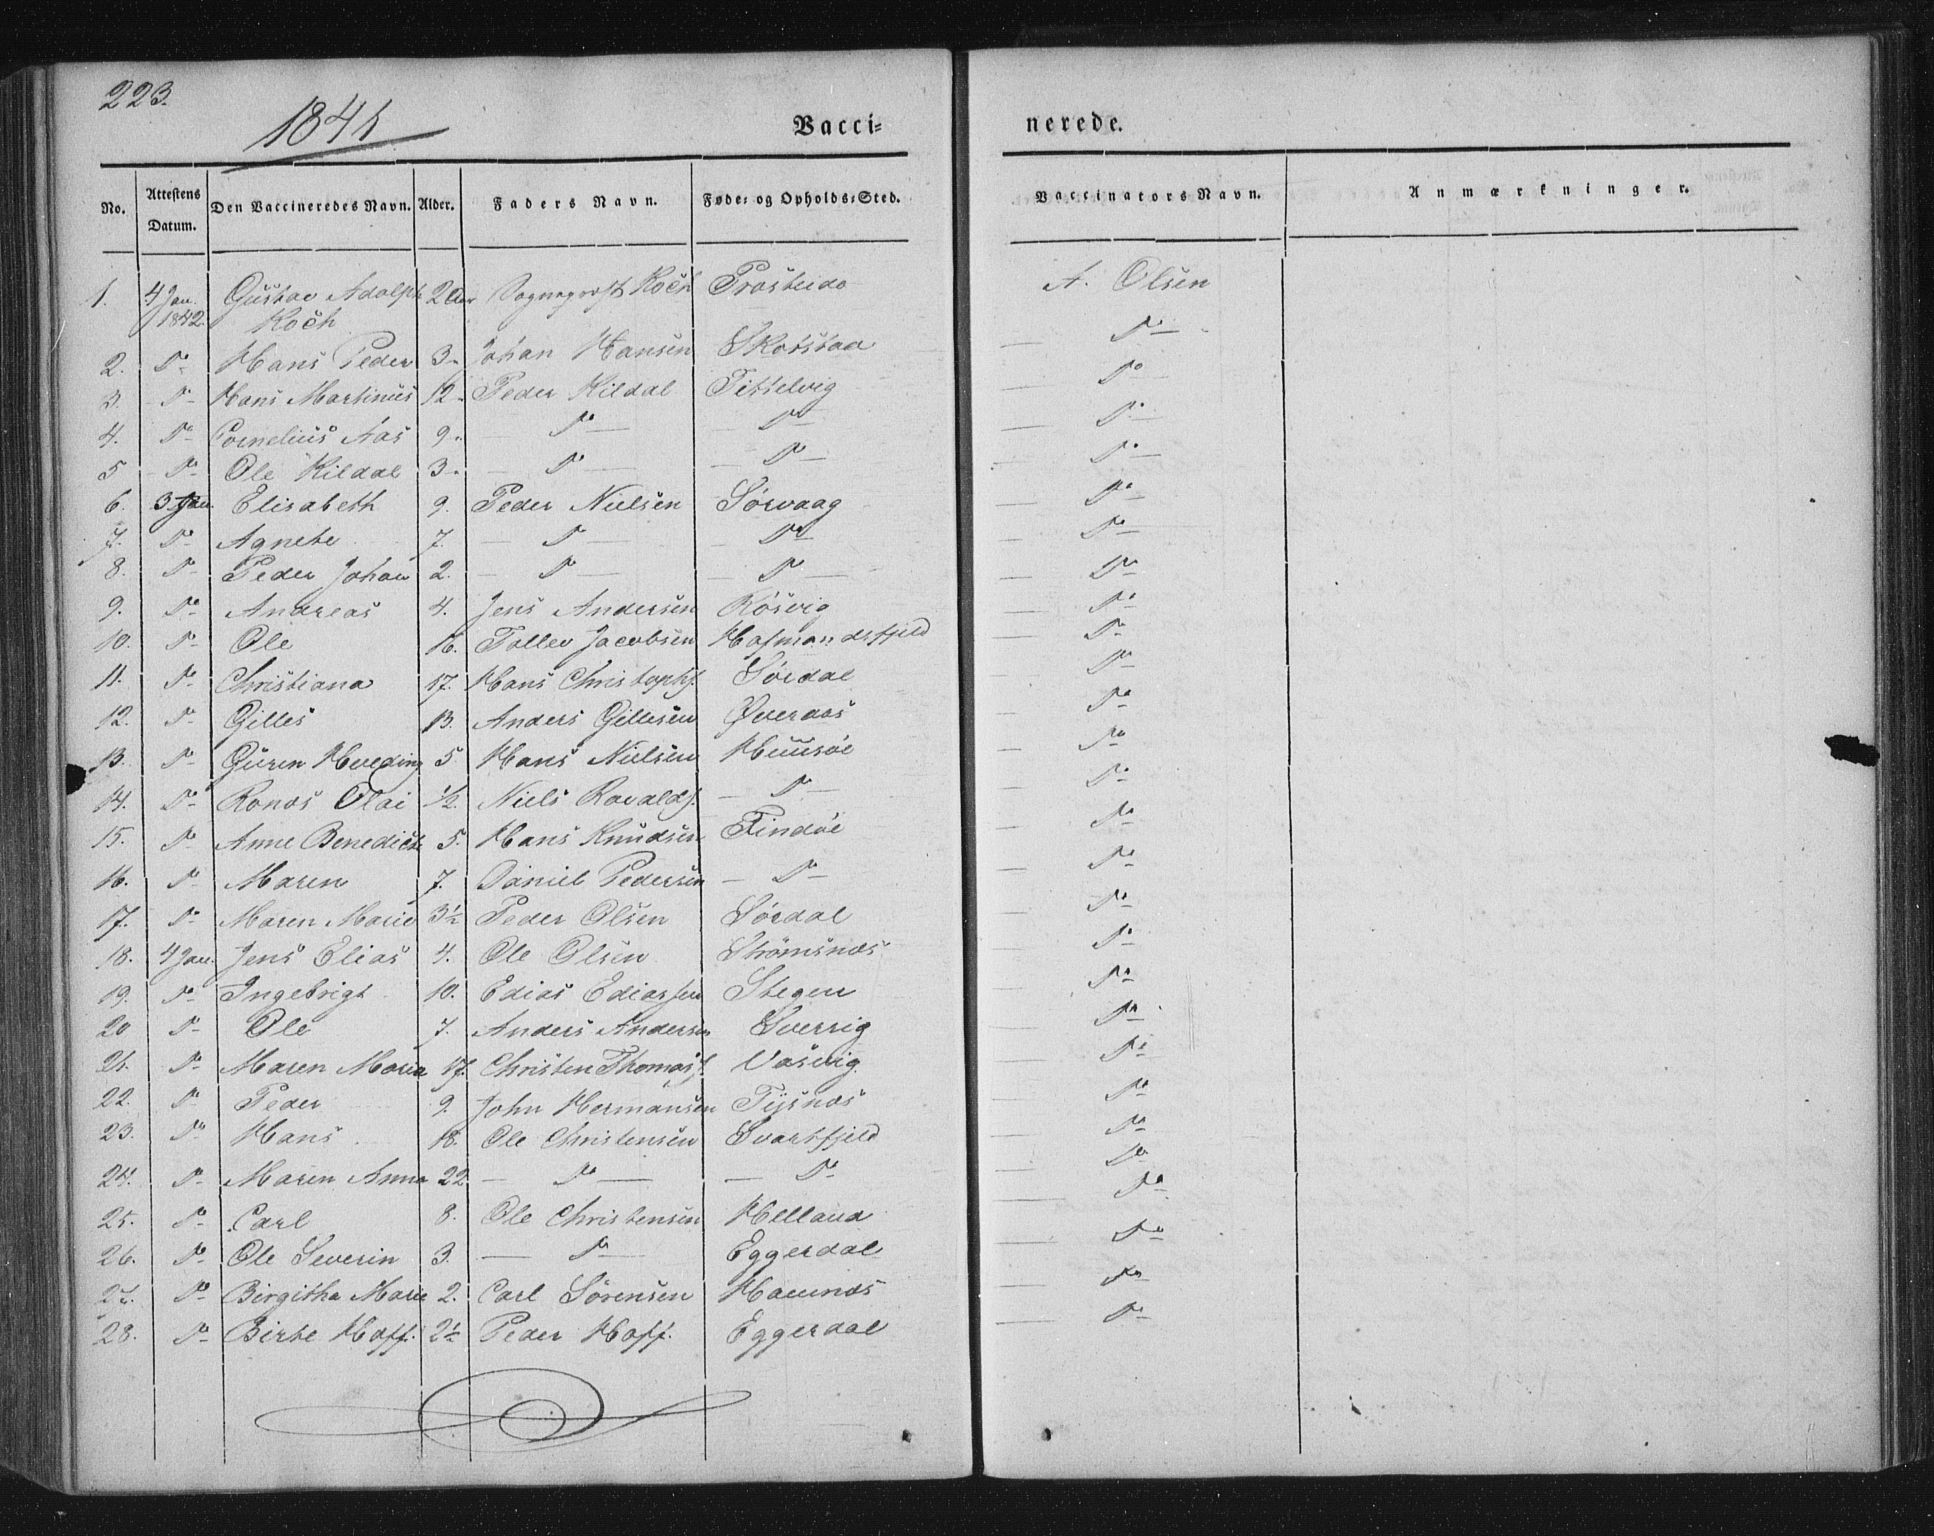 223.
1841
Vacci=
nerede.
No.
Attestens Datum.
Den Vaccineredes Navn.
Alder.
Faders Navn.
Føde= og Opholds=Sted.
Vaccinators Navn.
Anmærkninger.
1. 4 Jan. 1842. Gustav Adolph Koch 2 Aar Sogneprest Koch Prosteido A. Olsen
2. Do Hans Peder 3 Johan Hansen Skotstad Do
3. Do Hans Martinus 12 Peder Kildal Tittelvig Do
4. Do Cornelius Aas 9. Do Do Do
5 Do Ole Kildal 3 Do Do Do
6. 3 Jan. Elisabeth 9. Peder Nielsen Sørvaag Do
7. Do Agnete 7. Do Do Do
8. Do Peder Johan 2. Do Do Do
9. Do Andreas 4. Jens Andersen Røsvig Do
10. Do Ole 16. Tollev Jacobsen Hofmandsfjeld Do
11. Do Christiana 17. Hans Christophs. Sørdal Do
12. Do Gilles 13. Anders Gillesen Øveraas Do
13. Do Guren Hveding 5 Hans Nielsen Huusøe Do
14. Do Ronas Olai 1/2. Niels Ravalds. Do Do
15. Do Anne Benedicte 5. Hans Knudsen Findøe Do
16. Do Maren 7. Daniel Pedersen Do Do
17. Do Maren Marie 3 1/2 Peder Olsen Sørdal Do
18. 4 Jan. Jens Elias 4. Ole Olsen Strømsnæs Do
19. Do Ingebrigt 10. Edias Ediassen Stegen Do
20 Do Ole 7. Anders Andersen Sverrig Do
21. Do Maren Maria 17. Christen Thomass. Vasvig Do
22. Do Peder 9. John Hermansen Tijsnæs Do
23. Do Hans 18. Ole Christensen Svartfjeld Do
24. Do Maren Anna 22. Do Do Do
25. Do Carl 8. Ole Christensen Helland Do
26. Do Ole Severin 3. Do Eggerdal Do
27. Do Birgitha Marie 2. Carl Sørensen Hamnæs Do
28. Do Birte Hoff. 2 1/2 Peder Hoff. Eggerdal Do